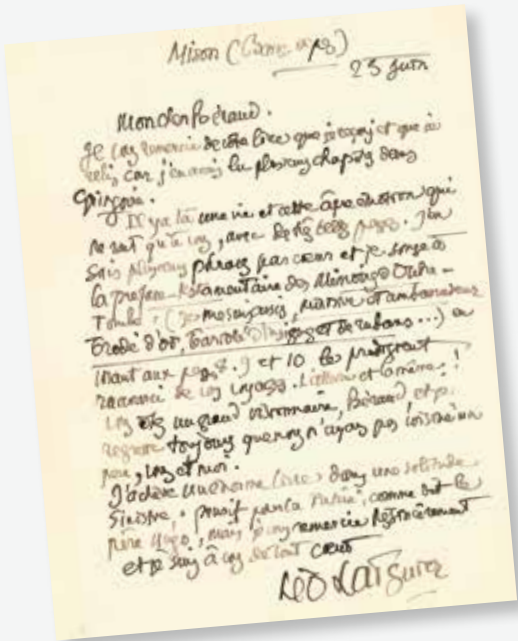 Mison
23 juin
Mon cher Béraud.
Je vous remercie de votre livre que je reçois et que je
relis car j'en avais lu plusieurs chapitres dans
Gringoire.
Il y a là une vie et cette âpre émotion qui
qu'à vous, avec de très belles pages. J'en
sais plusieurs phrases par cœur et je songe à
la préface testamentaire des Mémoires d'Outre-
Tombe : (Je me suis assis, et ambassadeur
brodé d'or, d'insignes et de rubans...) en
lisant aux pages 9 et 10 le prodigieux
raccourci de vos voyages.
Vous êtes un grand visionnaire, Béraud et je
regrette toujours que nous n'ayons pas voisiné un
peu, vous et moi.
J'achève un énorme livre dans une solitude
sinistre, par la comme dit le
père Hugo, mais je vous remercie
et je suis à vous de tout cœur
Léo Larguier